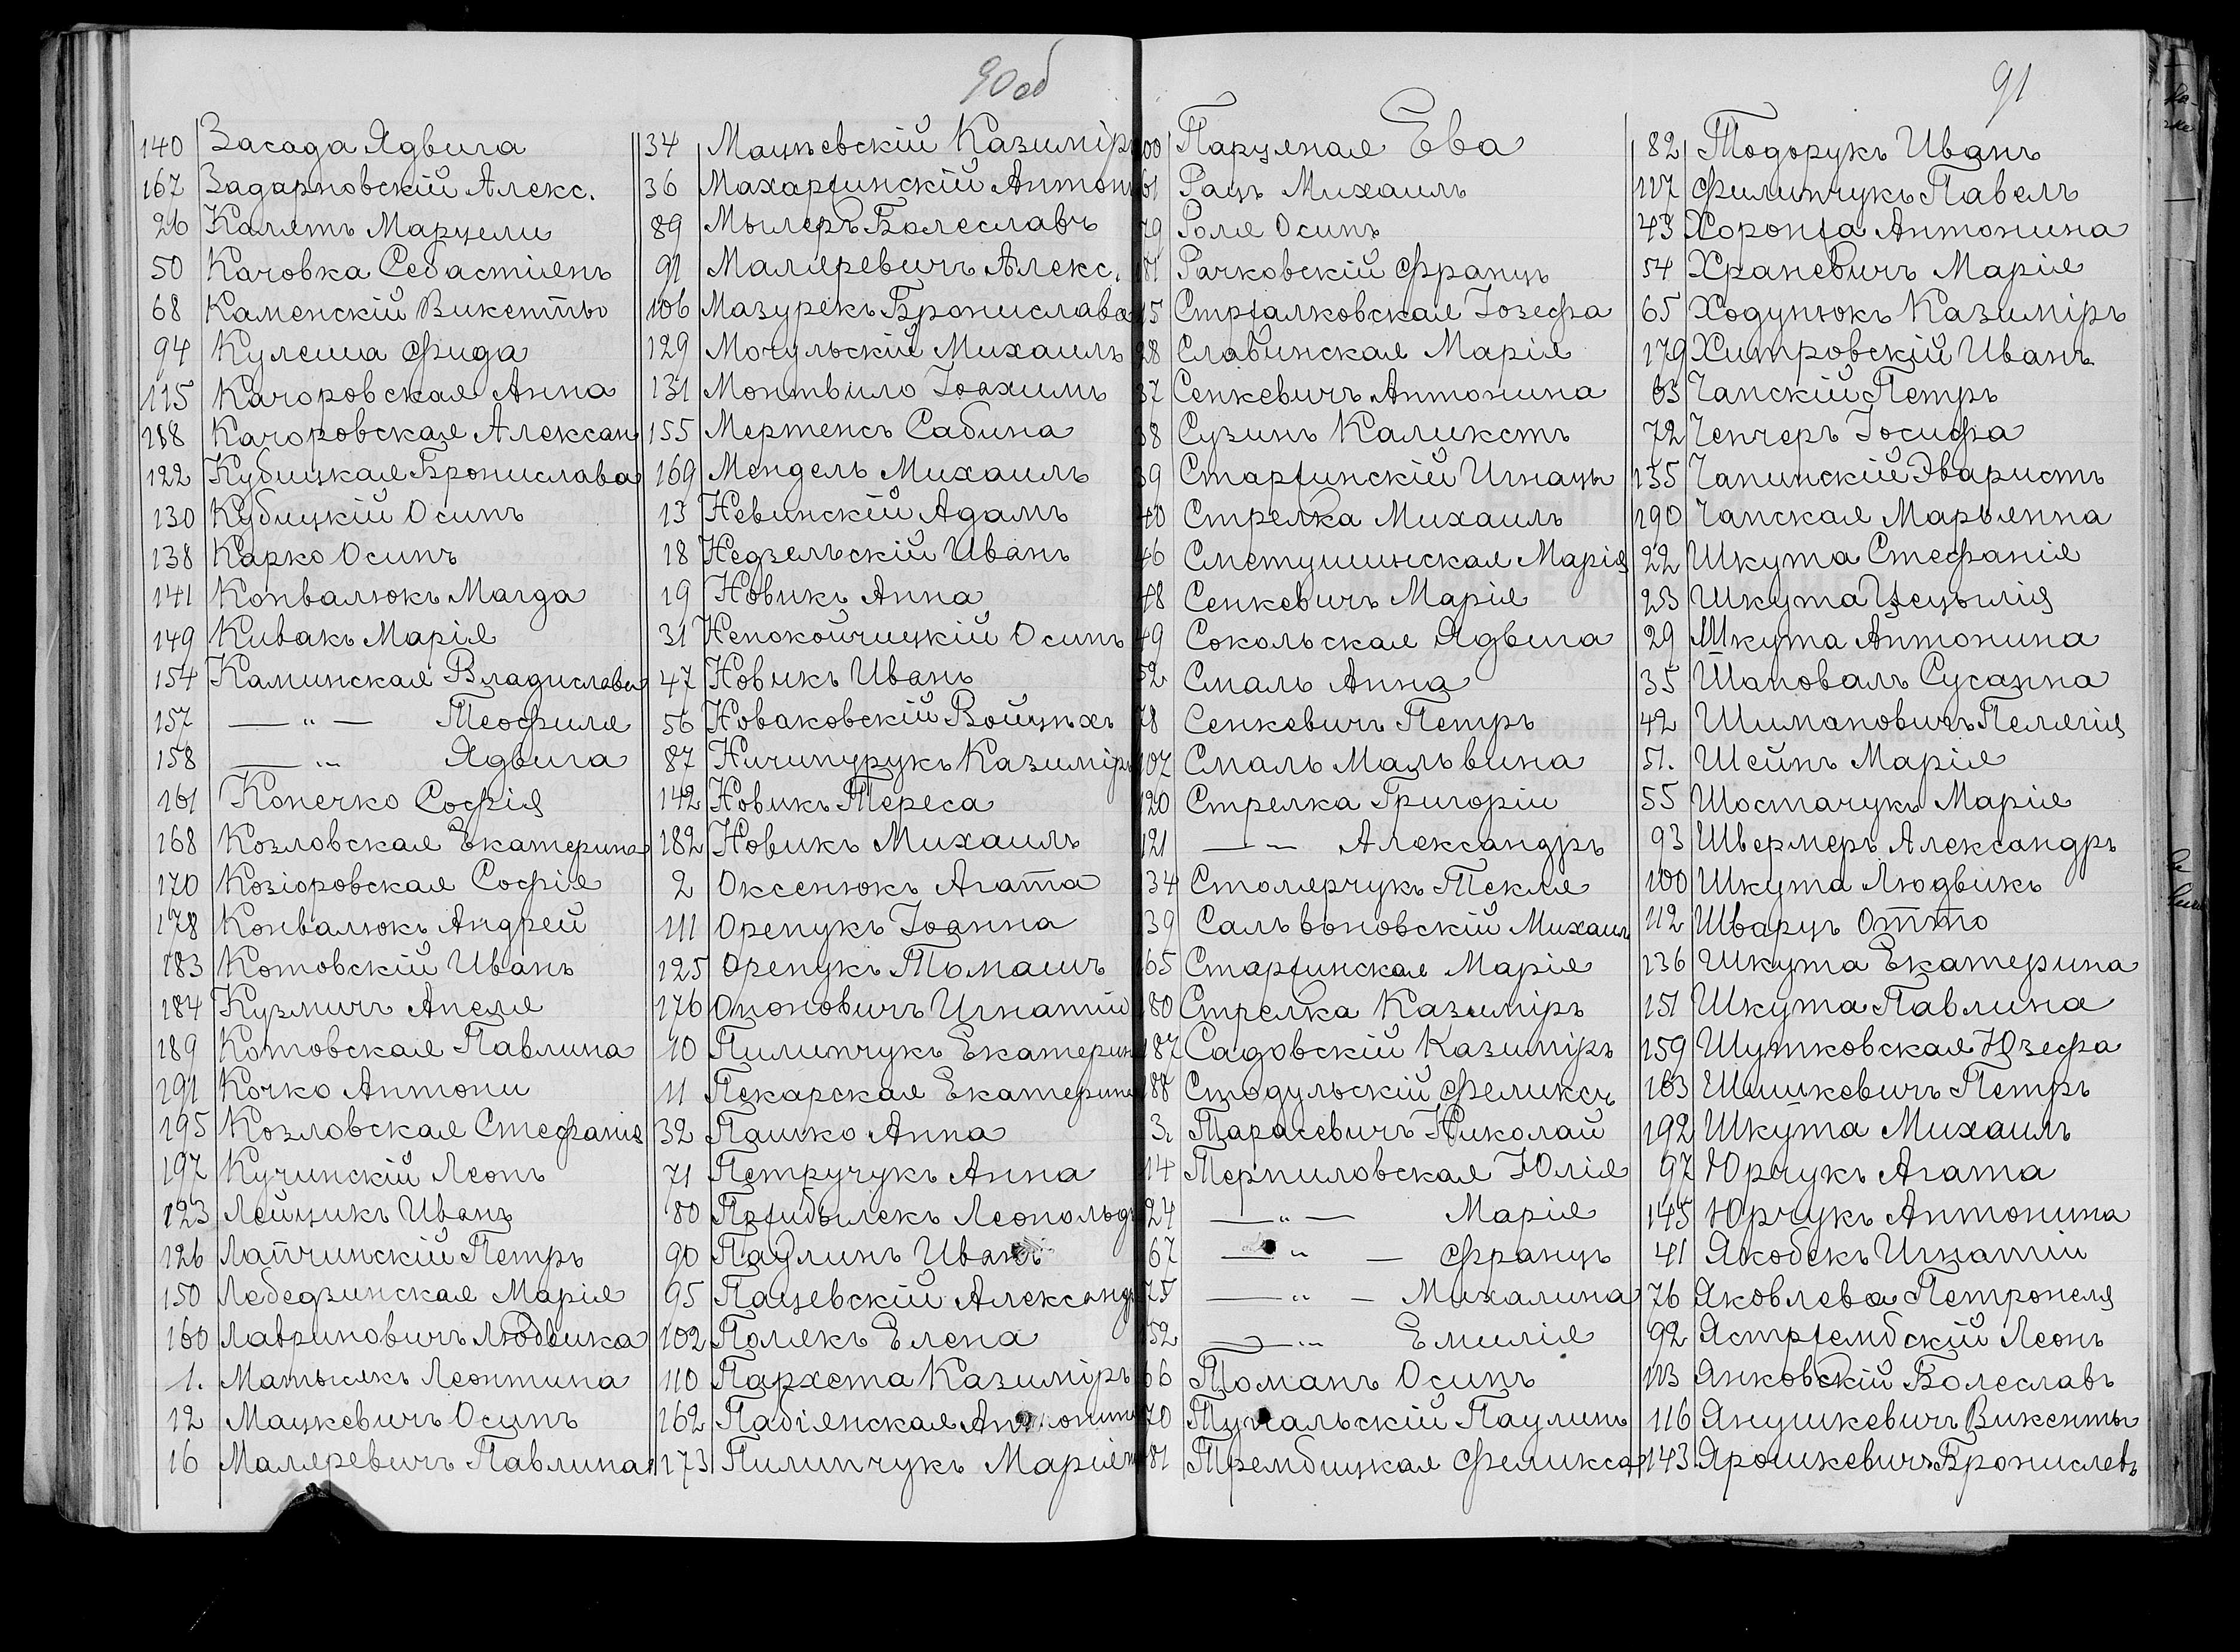 90об
140 Засада Ядвига
167 Задарновскій Алекс.
26 Калятъ Марцели
50 Качовка Себастіянъ
68 Каменскій Викентъ
94 Кулеша Фида
115 Качоровская Анна
188 Качоровская Алексан
122 Кубицкая Брониславa
130 Кубицкій Осипъ
138 Карко Осипъ
141 Конвалюкъ Магда
149 Кивакъ Марія
154 Каминская Владислава
157 — " — Теофиля
158 — " Ядвига
161 Конечко Софія
168 Козловская Екатерина
170 Козіоровская Софія
178 Конвалюкъ Андрей
183 Котовскій Иванъ
184 Кузмичъ Анеля
189 Котовская Павлина
191 Кочко Антони
195 Козловская Стефанія
197 Кучинскій Леонъ
123 Лейцикъ Иванъ
126 Лапчинскій Петръ
150 Лебедзинская Марія
160 Лавриновичъ Людвика
1. Матысякъ Леонтина
12 Мацкевичъ Осипъ
16 Маляревичъ Павлина
34 Мацѣевскій Казиміръ
36 Махаржинскій Антон
89 Мылеръ Болеславъ
91 Маляревичъ Алекс.
106 Мазурекъ Бронислава
129 Мочульскій Михаилъ
131 Монтвило Іоахимъ
155 Мертенсъ Сабина
169 Мендель Михаилъ
13 Невинскій Адамъ
18 Недзельскій Иванъ
19 Новикъ Анна
31 Непокойчицкій Осипъ
47 Новикъ Иванъ
56 Новаковскій Войцѣхъ
87 Ничипурукъ Казиміръ
142 Новикъ Тереса
182 Новикъ Михаилъ
2 Оксенюкъ Агата
111 Оренукъ Іоанна
125 Оренукъ Томашъ
176 Опоновичъ Игнатій
10 Пилипчукъ Екатерин
11 Пекарская Екатерина
32 Пашко Анна
71 Петручукъ Анна
80 Пржибылекъ Леопольдъ
90 Паулинъ Иванъ
95 Пацевскій Александ
102 Полякъ Елена
110 Пархета Казиміръ
162 Пабіянская Антонина
173 Пилипчукъ Марія
91
00 Парцяная Ева
61 Рацъ Михаилъ
79 Роля Осипъ
81 Рачковскій Францъ
15 Стржалковская Іозефа
28 Славинская Марія
37 Сенкевичъ Антонина
38 Сузинъ Каликстъ
39 Старжинскій Игнацы
40 Стрелка Михаилъ
46 Сметушинская Марія
48 Сенкевичъ Марія
49 Сокольская Ядвига
52 Смаль Анна
78 Сенкевичъ Петръ
107 Смаль Мальвина
120 Стрелка Григорій
121 — " — Александръ
34 Столярчукъ Текля
39 Сальвоновскій Михаил
65 Старжинская Марія
180 Стрелка Казиміръ
187 Садовскій Казиміръ
188 Стодульскій Феликсъ
3. Тарасевичъ Николай
14 Терпиловская Юлія
24 — " — Марія
67 — " — Францъ
75 — " — Михалина
52 — " Емилія
66 Томанъ Осипъ
70 Тукальскій Паулинъ
81 Трембицкая Феликса
82 Тодорукъ Иванъ
117 Филипчукъ Павелъ
43 Хоронжа Антонина
54 Храневичъ Марія
65 Ходунюкъ Казиміръ
179 Хитровскій Иванъ
63 Чапскій Петръ
72 Ченчеръ Іосифа
135 Чапинскій Эваристъ
190 Чапская Марьянна
22 Шкута Стефанія
23 Шкута Цецылія
29 Шкута Антонина
35 Шаповалъ Сусанна
42 Шимановичъ Пелягія
51. Шейнъ Марія
55 Шостачукъ Марія
93 Швермеръ Александръ
100 Шкута Людвикъ
112 Шварцъ Отто
136 Шкута Екатерина
151 Шкута Павлина
159 Шутковская Юзефа
163 Шишкевичъ Петръ
192 Шкута Михаилъ
97 Юрчукъ Агата
145 Юрчукъ Антонина
41 Якобекъ Игнатій
76 Яковлева Петронеля
92 Ястржембскій Леонъ
103 Янковскій Болеславъ
116 Янушкевичъ Викенты
143 Ярошкевичъ Брониславъ